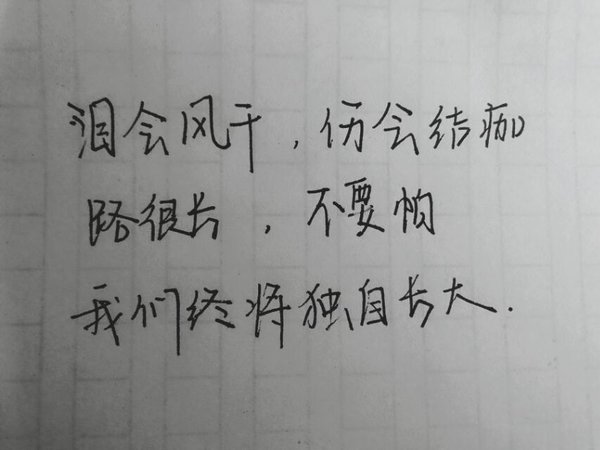 泪会风干，伤会结痂
路很长，不要怕
我们终将独自长大.